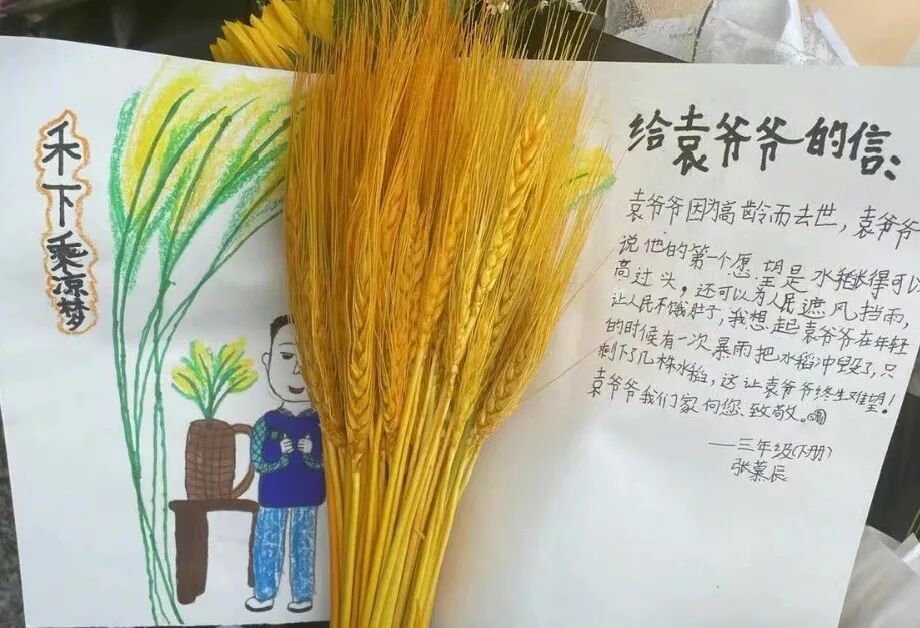 禾下乘凉梦
给袁爷爷的信：
袁爷爷因为高龄而去世，袁爷爷
说他的第一个愿望是水稻长得可以
高过头，还可以为人民遮风挡雨，
让人民不饿肚子，我想起袁爷爷在年轻
的时候有一次暴雨把水稻冲毁了，只
剩下了几株水稻，这让袁爷爷终生难望！
袁爷爷我们家向您致敬。
——三年级(下册)
张慕辰